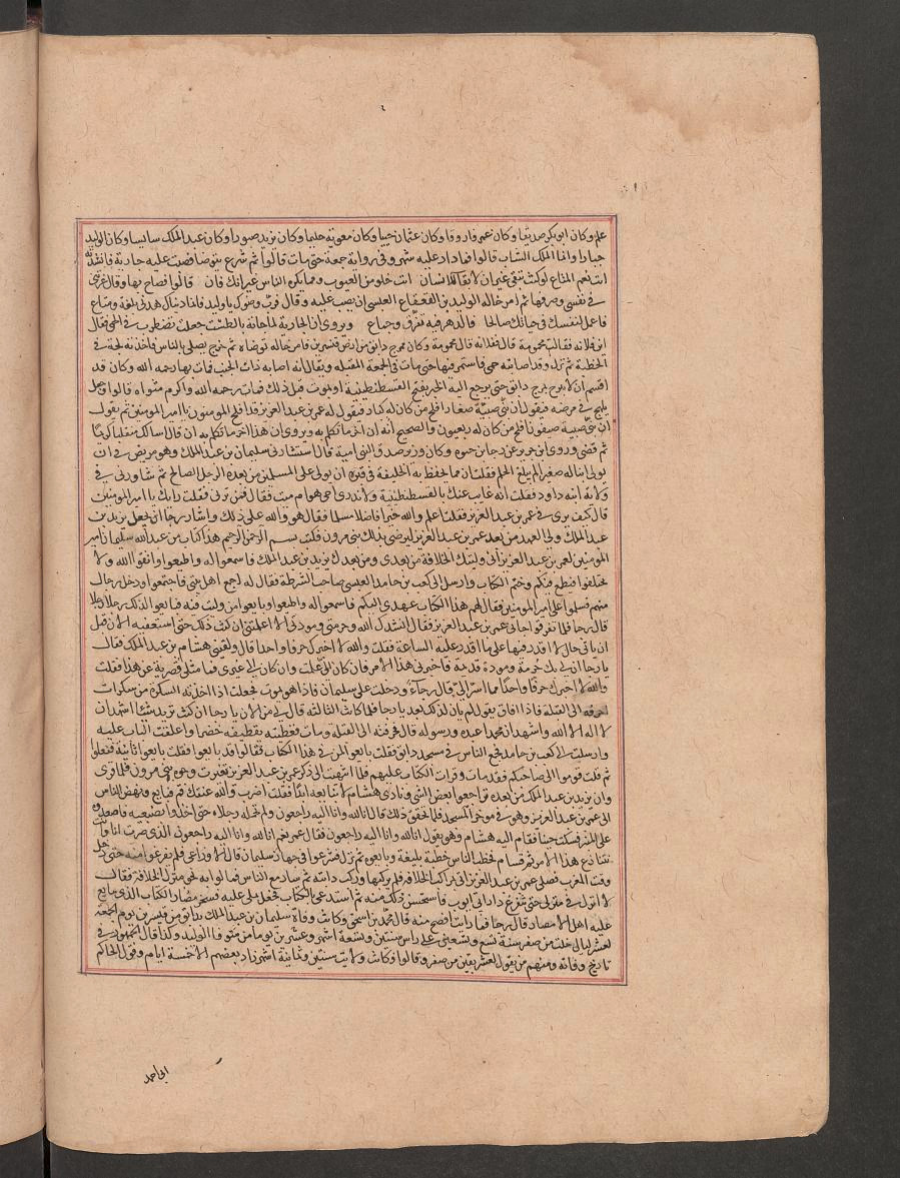 علم وكان ابو بكر صديقا وكان عمر فاروقا وكان عثمان حييا وكان معوية حليما وكان يزيد صبورا وكان عبد الملك سايسا وكان الوليد
جبارا وانا الملك الشاب قالوا فما دار عليه شهر وفي رواية جمعة حتى مات قالوا ثم شرع يتوضا فصبت عليه جارية فانشدته
انت نعم المتاع لو كنت تبقى غير ان لا بقا للانسان انت خلو من العيوب ومما يكره الناس غير انك فان قالوا فصاح بها وقال عزتني
في نفسي وصرفها ثم امر خاله الوليد بن القعقاع العبسي ان يصب عليه وقال قرب وضوك يا وليد فانما دنياك هذى بلغة ومتاع
فاعمل لنفسك في حياتك صالحا فالدهر فيه تفرق وجماع ويروى ان الجارية لما جاته بالطشت جعلت تضطرب في الحمى فقال
اين فلانة فقالت محمومة قال ففلانة قال محمومة وكان بمرج دابق من ارض قنسرين فامر خاله توضاه ثم خرج يصلي بالناس فاخذته بحة في
الخطبة ثم نزل وقد اصابته حمى فاستمر فيها حتى مات في الجمعة المقبلة ويقال انه اصابه ذات الجنب فمات بها رحمه الله وكان قد
اقسم ان لا يبرح بمرج دابق حتى يرجع اليه الخبر بفتح القسطنطينية او يموت قبل ذلك فمات رحمه الله واكرم مثواه قالوا وجعل
يلهج في مرضه فيقول ان بني صبية صغار افلح من كان له كبار فيقول له عمر بن عبد العزيز قد افلح المومنون يا امير المومنين ثم يقول
ان بني صبية صيفيون افلح من كان له ربعيون والصحيح انه ان اخر ما تكلم به ويروى ان هذا اخر ما تكلم به ان قال اسالك منقلبا كريما
ثم قضى وروى ابن جرير عن رجا بن حيوة وكان وزير صدق لبني امية قال استشارني سليمان بن عبد الملك وهو مريض في ان
يولي ابنا له صغيرا لم يبلغ الحلم فقلت ان مما يحفظ به الخليفة في قبره ان يولي على المسلمين من بعده الرجل الصالح ثم شاورني في
ولاية ابنه داود فقلت انه غاب عنك بالقسطنطينية ولا تدري احي هو ام ميت فقال فمن ترى فقلت رايك يا امير المومنين
قال كيف ترى في عمر بن عبد العزيز فقلت اعلم والله خيرا فاضلا مسلما فقال هو والله على ذلك واشار رجا ان يجعل يزيد بن
عبد الملك ولي العهد من بعد عمر بن عبد العزيز ليرضى بذلك بني مرون فكتب بسم الله الرحمن الرحيم هذا كتاب من عبد الله سليمان امير
المومنين لعمر بن عبد العزيز اني وليتك الخلافة من بعدي ومن بعدك يزيد بن عبد الملك فاسمعوا له واطيعوا واتقوا الله ولا
تختلفوا فيطمع فيكم وختم الكتاب وارسل الى كعب بن حامد العبسي صاحب الشرطة فقال له اجمع اهل بيتي فاجتمعوا ودخل رجال
منهم فسلموا على امير المومنين فقال لهم هذا الكتاب عهدي اليكم فاسمعوا له واطيعوا وبايعوا من وليت فيه فبايعوا لذلك رجلا رجلا
قال رجا فلما تفرقوا جاني عمر بن عبد العزيز فقال انشدك الله وحرمتي ومودتي الا اعلمتني ان كنت ذلك حتى استعفيه الان قبل
ان ياتي حال لا اقدر فيها على ما اقدر عليه الساعة فقلت والله لا اخبرك حرفا واحدا قال ولقيني هشام بن عبد الملك فقال
يا رجا ان لي بك حرمة ومودة قديمة فاخبرني هذا الامر فان كان الي علمت وان كان الى غيري فما مثلي قصر به عن هذا فقلت
والله لا اخبرك حرفا واحدا مما اسر الي قال رجاء ودخلت على سليمان فاذا هو يموت فجعلت اذا اخذته السكرة من سكرات
احرفه الى القبلة فاذا افاق يقول لم يان لذلك بعد يا رجا فلما كانت الثالثة قال لي من الان يا رجا ان كنت تريد شيئا اشهد ان
لا اله الا الله واشهد ان محمدا عبده ورسوله قال فحرفته الى القبلة ومات فغطيته بقطيفة خضرا واغلقت الباب عليه
وارسلت الى كعب بن حامد فجمع الناس في مسجد دابق فقلت بايعوا لمن في هذا الكتاب فقالوا قد بايعوا فقلت بايعوا ثانية ففعلوا
ثم قلت قوموا الى صاحبكم فقد مات وقرات الكتاب عليهم فلما انتهت الى ذكر عمر بن عبد العزيز تغيرت وجوه بني مرون فلما قرى
وان يزيد بن عبد الملك من بعده تراجعوا بعض الشي ونادى هشام لا نبايعه ابدا فقلت اضرب والله عنقك قم فبايع ونهض الناس
الى عمر بن عبد العزيز وهو في موخر المسجد فلما تحقق ذلك قال انا لله وانا اليه راجعون ولم تحمله رجلاه حتى اخذوا بضبعيه فاصعدوه
على المنبر فسكت حينا فقام اليه هشام وهو يقول انا لله وانا اليه راجعون فقال عمر نعم انا لله وانا اليه راجعون الذي صرت انا وانت
نتنازع هذا الامر ثم قام فخطب الناس خطبة بليغة وبايعوه ثم نزل فشرعوا في جهاز سليمان قال الاوزاعي فلم يفرغوا منه حتى دخل
وقت المغرب فصلى عمر بن عبد العزيز اتي بمراكب الخلافة فلم يركبها وركب دابته ثم سار مع الناس فمالوا به نحو منزل الخلافة فقال
لا انزل في منزلي حتى تفرغ دار ابي ايوب فاستحسن ذلك منه ثم استدعى بالكتاب فجعل يملي عليه فسخر مصار الكتاب الذي ما يبايع
عليه اهل الامصار قال رجا فما رايت افصح منه قال محمد بن اسحق وكانت وفاة سليمان بن عبد الملك بدابق من قنسرين يوم الجمعة
لعشر ليال خلت من صفر سنة تسع وتسعين على راس سنتين وتسعة اشهر وعشرين يوما من متوفا الوليد وكذا قال الجمهور في
تاريخ وفاته ومنهم من يقول لعشر بقين من صفر وقالوا وكانت ولايته سنتين وثمانية اشهر زاد بعضهم الا خمسة ايام وقول الحاكم
ابي احمد